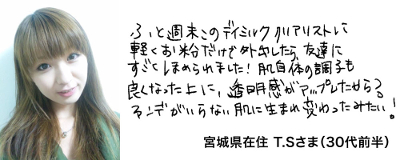 ふと週末このデイミルククリアリストに
軽くお粉だけで外出したら、友達に
すごくほめられました！肌自体の調子も
良くなった上に、透明感がアップしたから？
ファンデがいらない肌に生まれ変わったみたい！
宮城県在住 T.Sさま（30代前半）